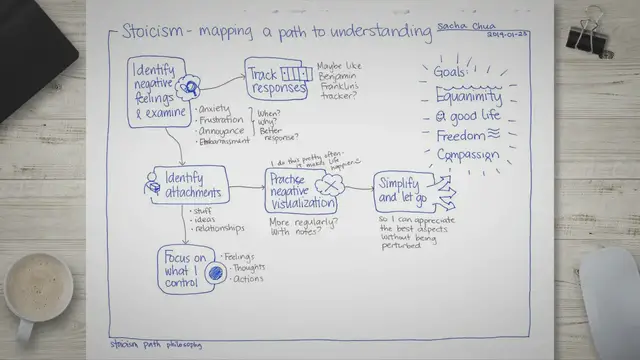 Stoicism - mapping a path to understanding
sacha chua
2019-01-23
Identify
negative
feelings
& examine
Track
responses
Maybe like
Benjamin
Franklin's
tracker?
• anxiety
• Frustration
• Annoyance
• Embarrassment
When?
Why?
Better
response?
Goals:
Equanimity
a good life
Freedom
Compassion
Identify
attachments
• stuff
• ideas
• relationships
I do this pretty often
Practise
negative
visualization
More regularly?
With notes?
Simplify
and let go
so I can appreciate
the best aspects
without being
perturbed
Focus on
what I
control
• Feelings
• Thoughts
• actions
stoicism path philosophy